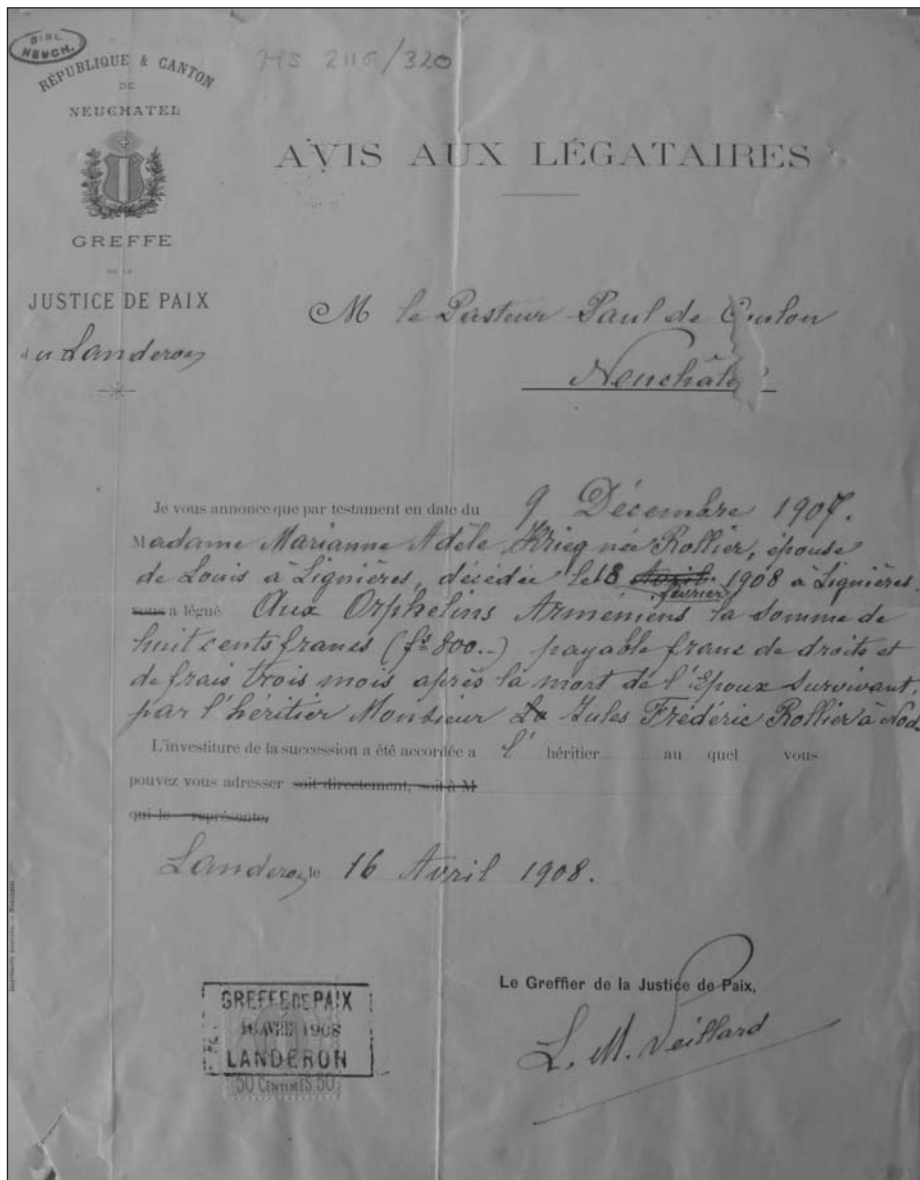 BIBL.
NEUCH.
MS 2116/320
RÉPUBLIQUE & CANTON
DE
NEUCHATEL
AVIS AUX LÉGATAIRES
GREFFE
DE LA
JUSTICE DE PAIX
du Landeron
M le Pasteur Paul de Coulon
Neuchâtel
Je vous annonce que par testament en date du 9 Décembre 1907.
Madame Marianne Adèle Krieg née Rollier, épouse
de Louis à Lignières, décédée le 18 Avril 1908 à Lignières
février
vous a légué Aux Orphelins Arméniens la somme de
huit cents francs (fs 800..) payable franc de droits et
de frais trois mois après la mort de l'Epoux survivant
par l'héritier Monsieur Le Jules Frédéric Rollier à Nods
L'investiture de la succession a été accordée a l' héritier au quel vous
pouvez vous adresser soit directement, soit à M
qui le représente,
Landeron le 16 Avril 1908.
Le Greffier de la Justice de Paix,
L. M. Veillard
GREFFE DE PAIX
16 AVRIL 1908
LANDERON
50 CENTIMES 50